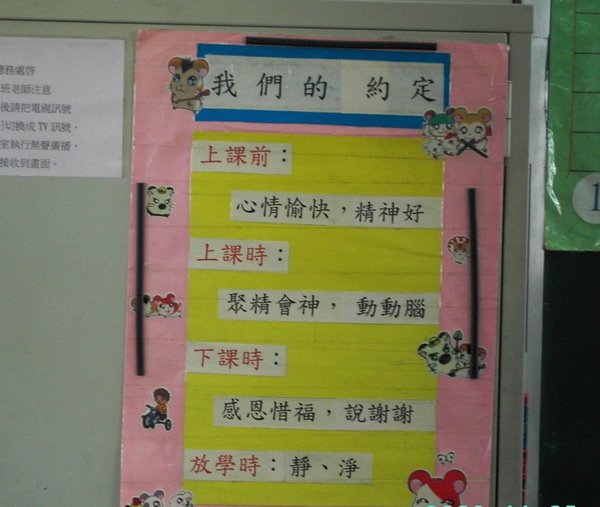 總務處啓
班老師注意
後請把電視訊號
切換成TV訊號,
室執行無聲廣播,
接收到畫面。
我們的 約定
上課前:
心情愉快,精神好
上課時:
聚精會神, 動動腦
下課時:
感恩惜福,說謝謝
放學時:靜、淨
1